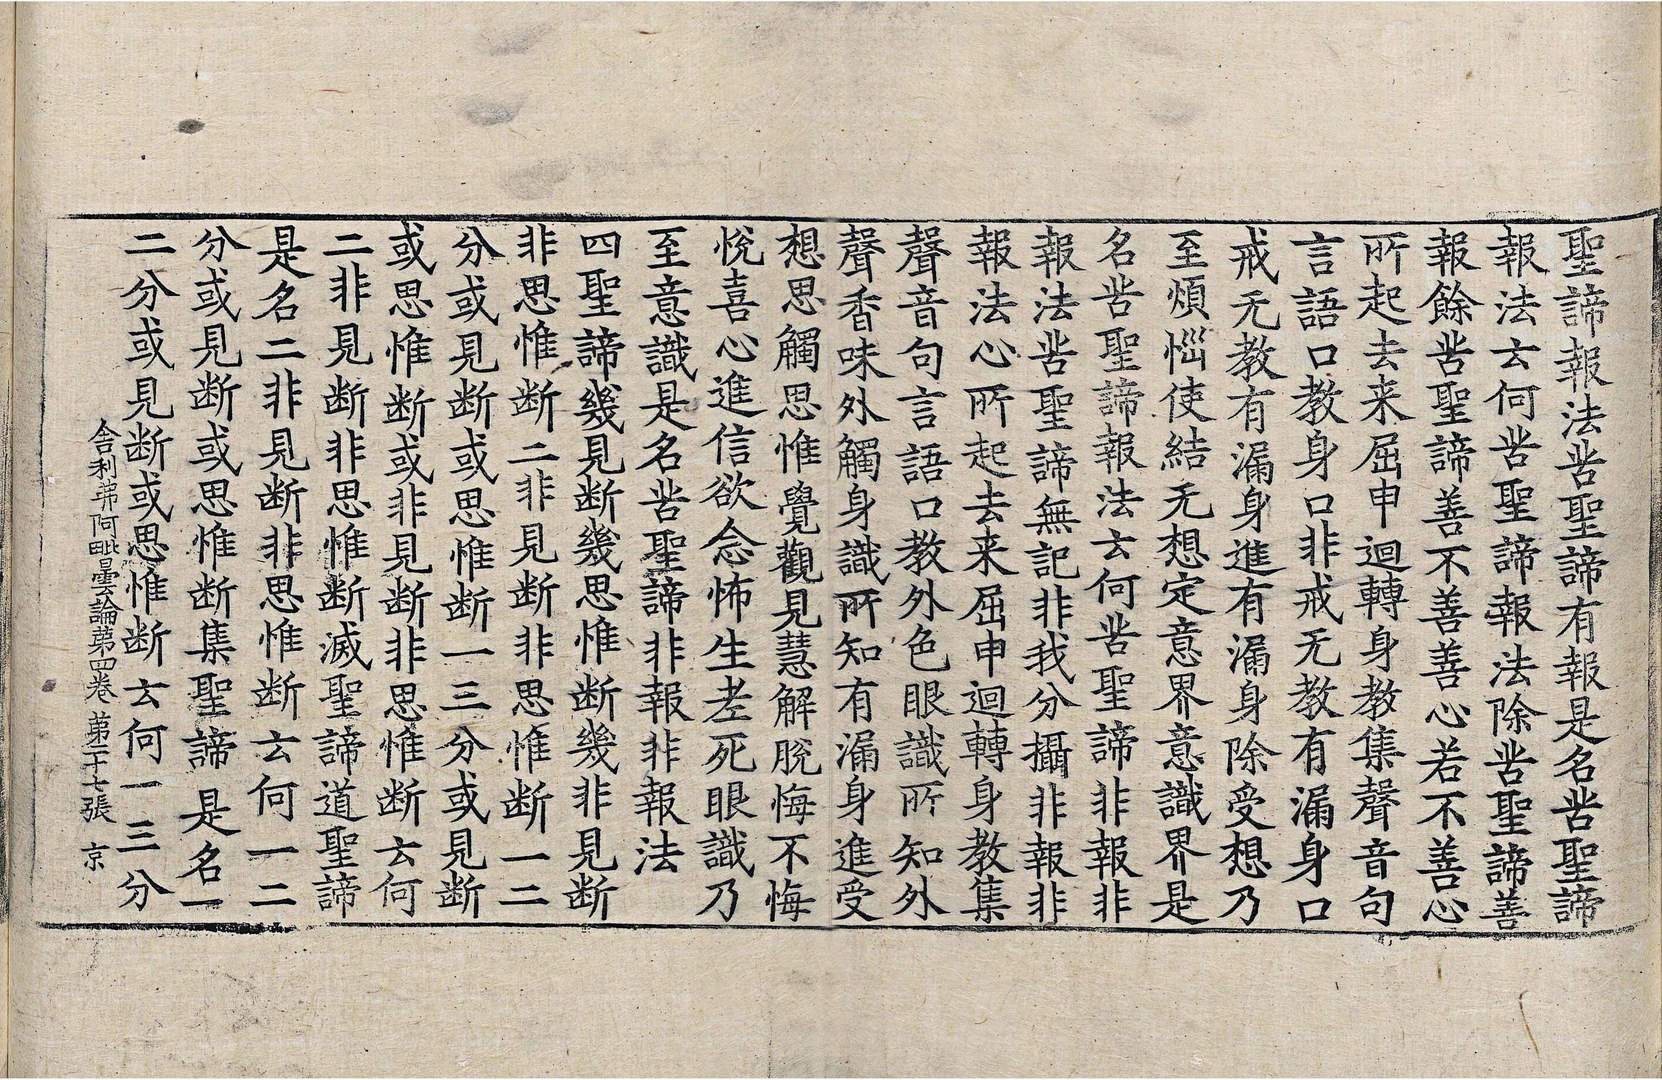 聖諦報法苦聖諦有報是名苦聖諦
報法云何苦聖諦報法除苦聖諦善
報餘苦聖諦善不善善心若不善心
所起去来屈申迴轉身教集聲音句
言語口教身口非戒无教有漏身口
戒无教有漏身進有漏身除受想乃
至煩惱使結无想定意界意識界是
名苦聖諦報法云何苦聖諦非報非
報法苦聖諦無記非我分攝非報非
報法心所起去来屈申迴轉身教集
聲音句言語口教外色眼識所知外
聲香味外觸身識所知有漏身進受
想思觸思惟覺觀見慧解脫悔不悔
悅喜心進信欲念怖生老死眼識乃
至意識是名苦聖諦非報非報法
四聖諦幾見断幾思惟断幾非見断
非思惟断二非見断非思惟断一二
分或見断或思惟断一三分或見断
或思惟断或非見断非思惟断云何
二非見断非思惟断滅聖諦道聖諦
是名二非見断非思惟断云何一二
分或見断或思惟断集聖諦是名一
二分或見断或思惟断云何一三分
舍利弗阿毗曇論第四卷 第二十七張 京